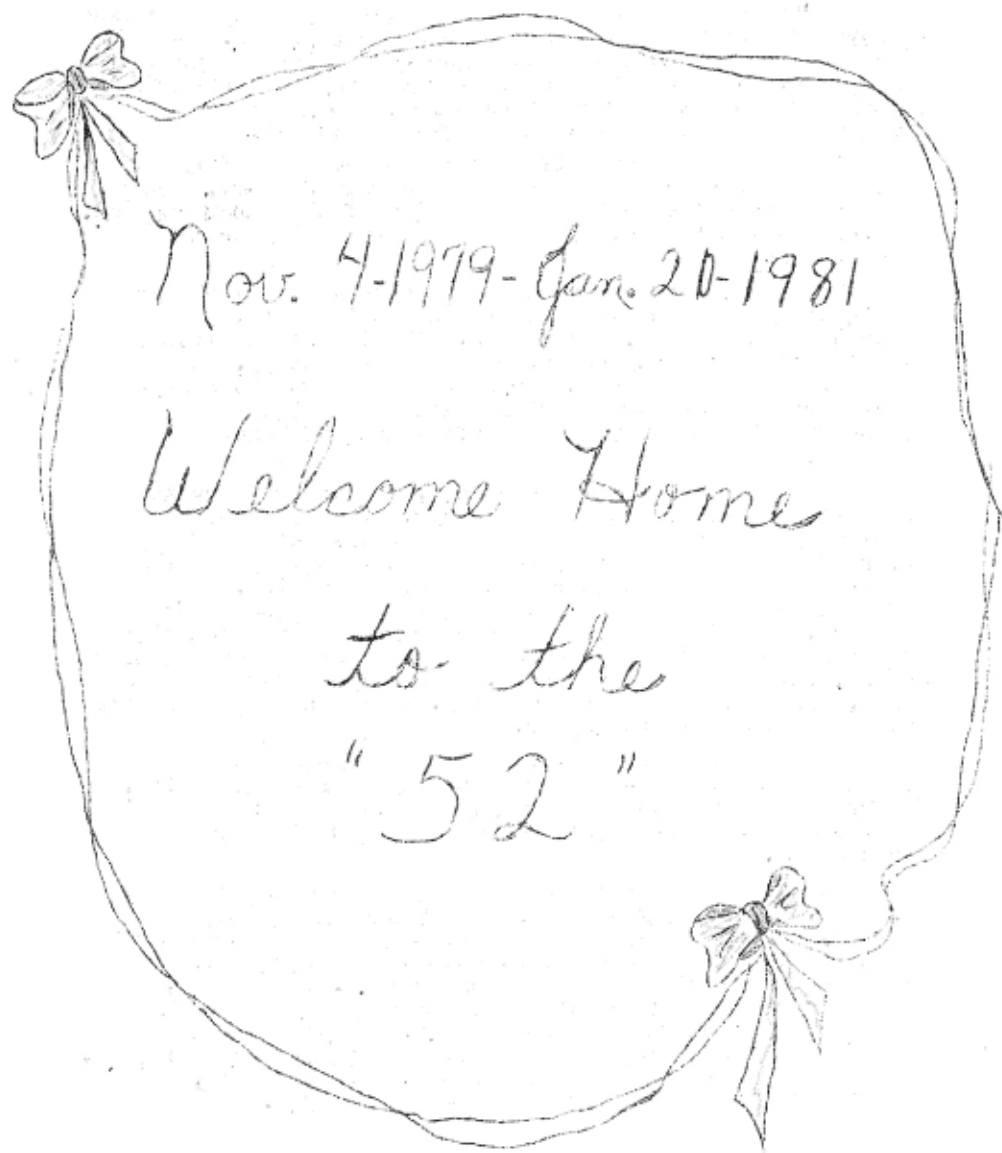 Nov. 4-1979-Jan. 20-1981
Welcome Home
to the
"52"